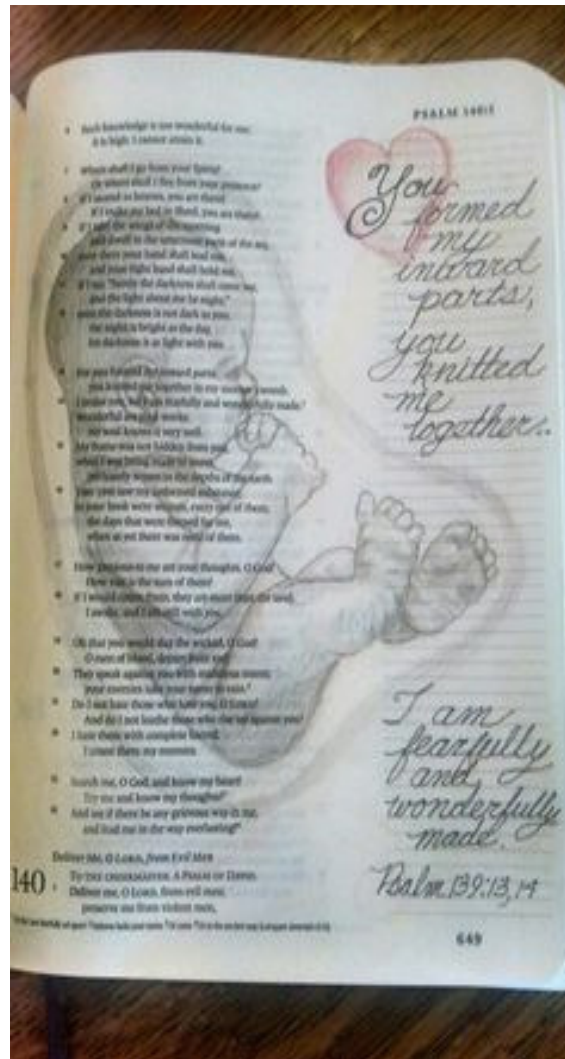 PSALM 140:1
6 Such knowledge is too wonderful for me;
it is high; I cannot attain it.
7 Where shall I go from your Spirit?
Or where shall I flee from your presence?
8 If I ascend to heaven, you are there!
If I make my bed in Sheol, you are there!
9 If I take the wings of the morning
and dwell in the uttermost parts of the sea,
10 even there your hand shall lead me,
and your right hand shall hold me.
11 If I say, "Surely the darkness shall cover me,
and the light about me be night,"
12 even the darkness is not dark to you;
the night is bright as the day,
for darkness is as light with you.
13 For you formed my inward parts;
you knitted me together in my mother's womb.
14 I praise you, for I am fearfully and wonderfully made.
Wonderful are your works;
my soul knows it very well.
15 My frame was not hidden from you,
when I was being made in secret,
intricately woven in the depths of the earth.
16 Your eyes saw my unformed substance;
in your book were written, every one of them,
the days that were formed for me,
when as yet there was none of them.
17 How precious to me are your thoughts, O God!
How vast is the sum of them!
18 If I would count them, they are more than the sand.
I awake, and I am still with you.
19 Oh that you would slay the wicked, O God!
O men of blood, depart from me!
20 They speak against you with malicious intent;
your enemies take your name in vain.
21 Do I not hate those who hate you, O LORD?
And do I not loathe those who rise up against you?
22 I hate them with complete hatred;
I count them my enemies.
23 Search me, O God, and know my heart!
Try me and know my thoughts!
24 And see if there be any grievous way in me,
and lead me in the way everlasting!
Deliver Me, O LORD, from Evil Men
TO THE CHOIRMASTER. A PSALM OF DAVID.
140 Deliver me, O LORD, from evil men;
preserve me from violent men,
649
You
formed
my
inward
parts,
you
knitted
me
together..
I am
fearfully
and
wonderfully
made.
Psalm 139:13,14